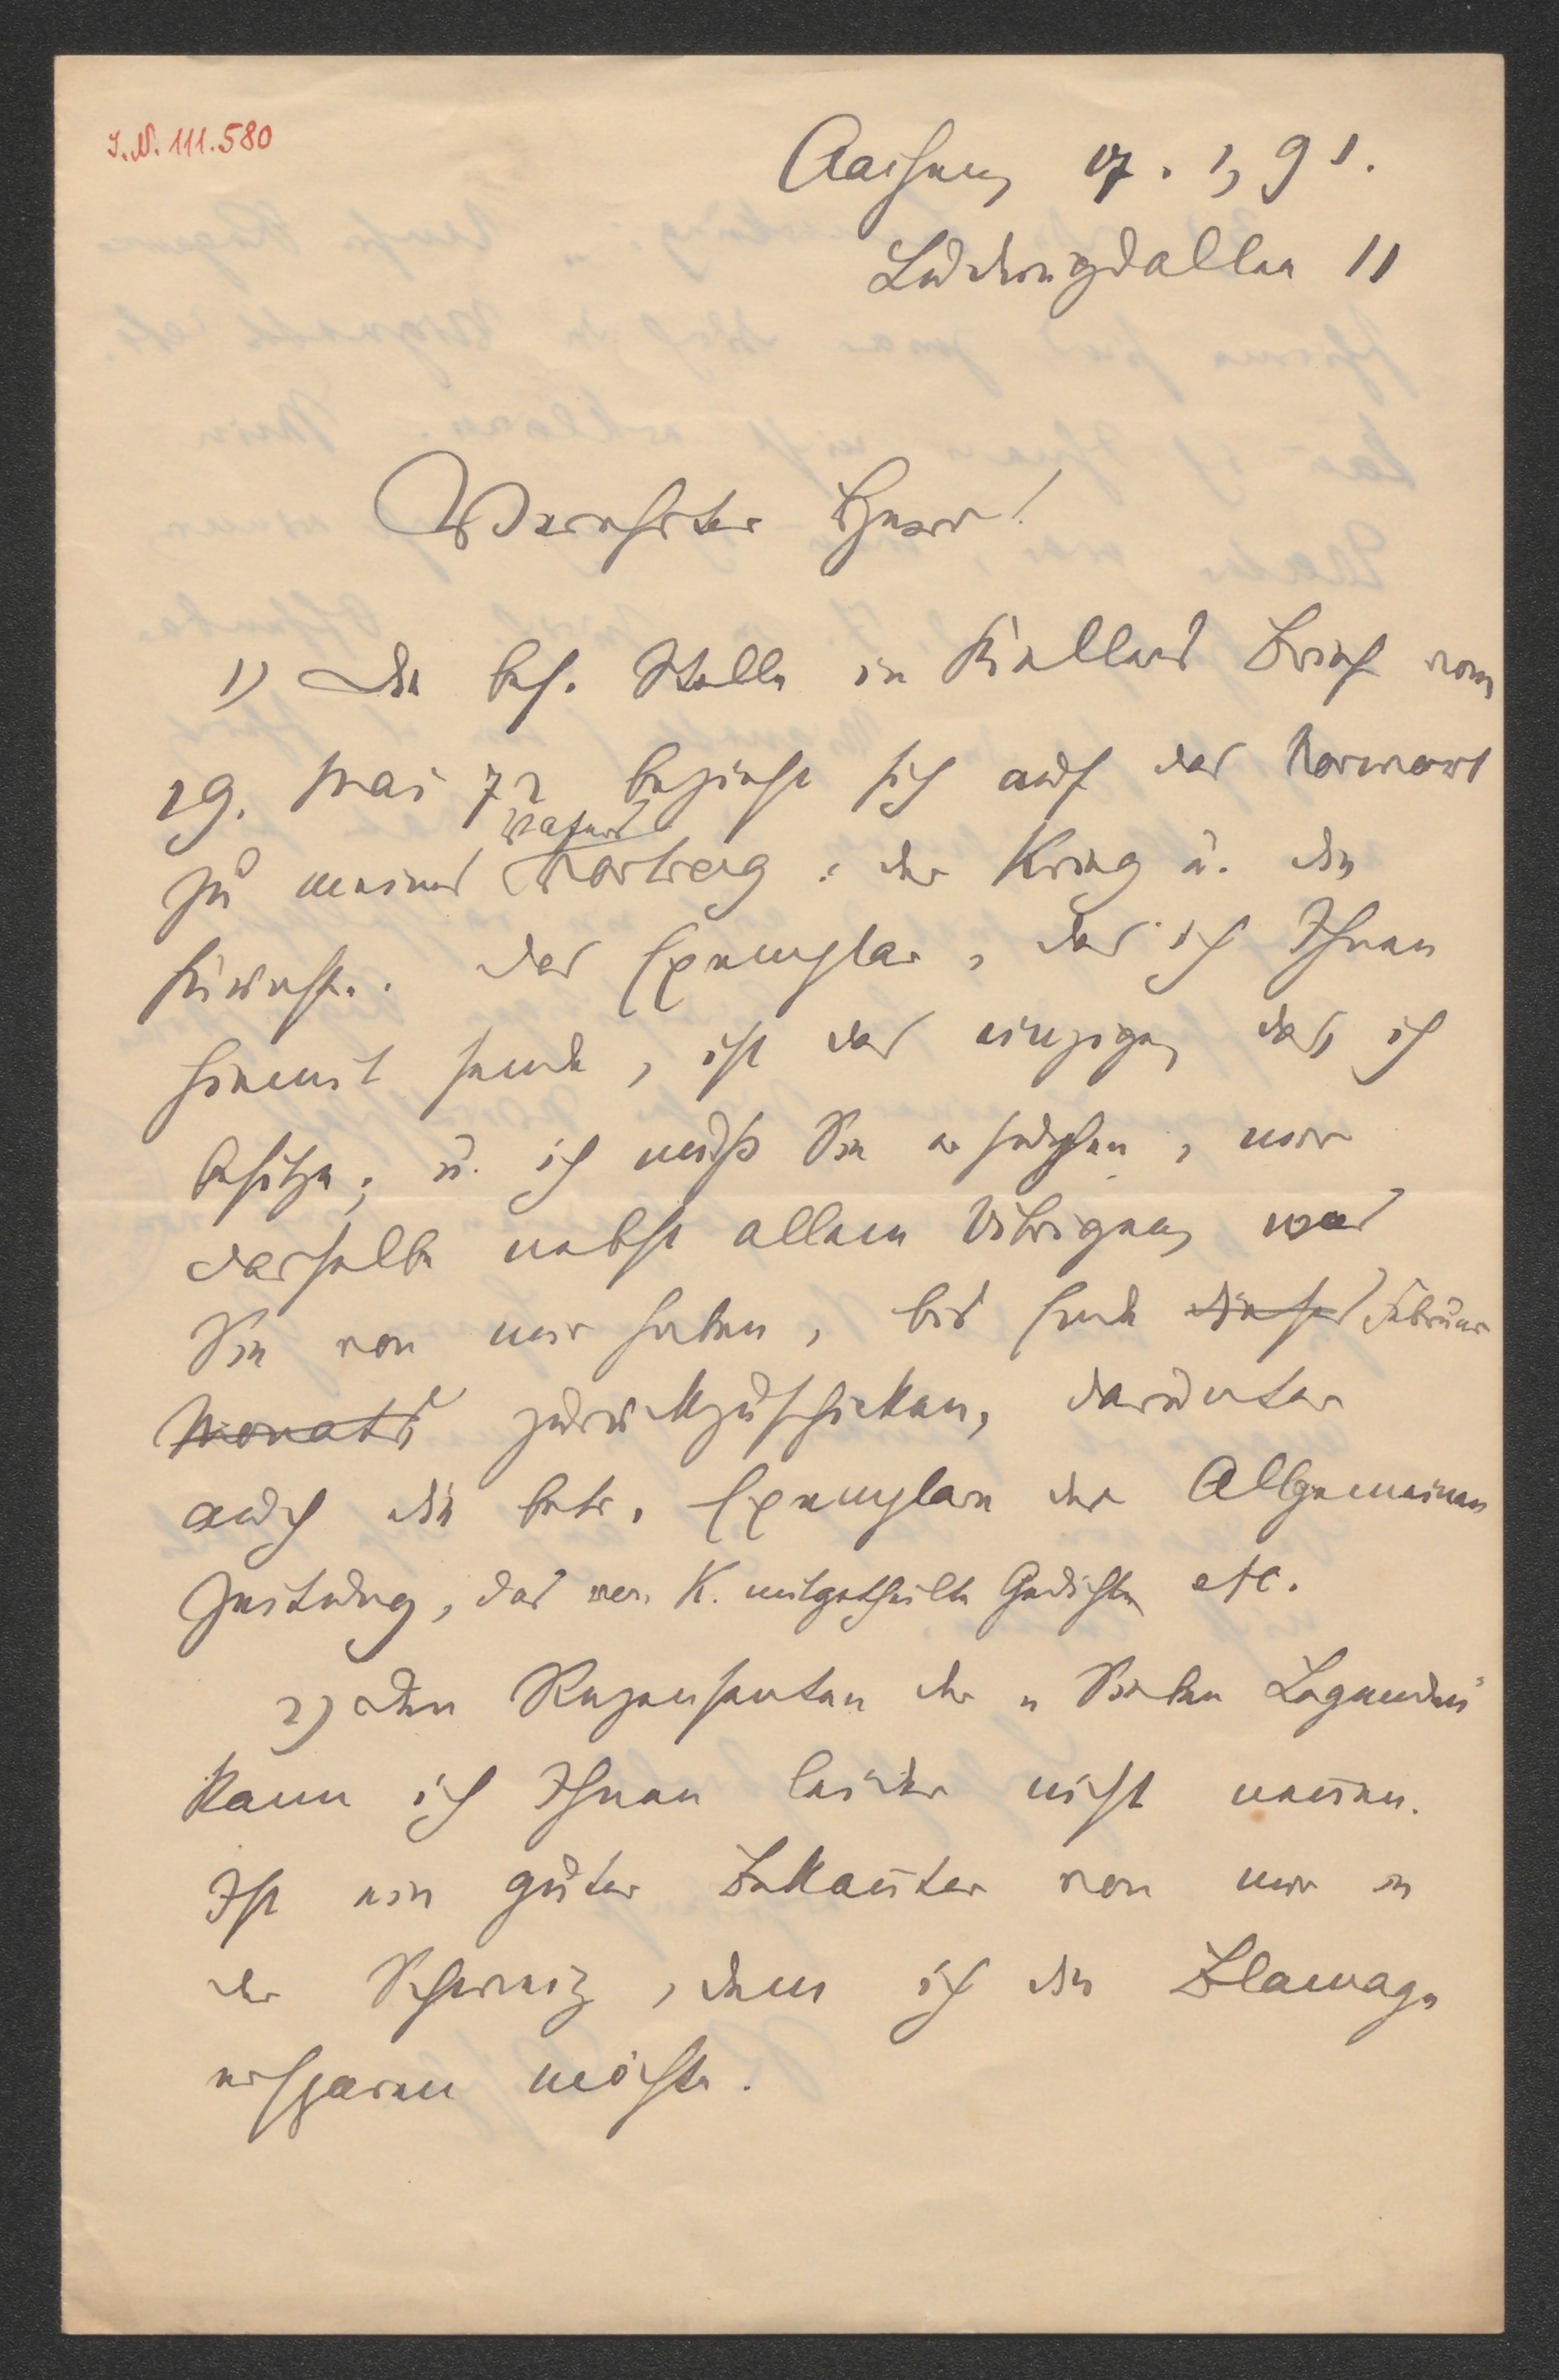 I.N. 111.580
Aachen, 17. 1, 91.
Ludwigsallee 11
Verehrter Herr!
1) Die bes. Stelle in Kellers Brief vom
29. Mai 72 bezieht sich auf das Vorwort
zu meines Vaters Vortrag: der Krieg u. die
Künste. Das Exemplar, das ich Ihnen
hiemit sende, ist das einzige, das ich
besitze; u. ich muß Sie ersuchen, mir
dasselbe nebst allem Übrigen, was
Sie von mir haben, bis Ende dieses Februar
Monats zurückzuschicken, darunter
auch die betr. Exemplare der Allgemeinen
Zeitung, das von K. mitgetheilte Gedicht etc.
2) Den Rezensenten der „Sieben Legenden"
kann ich Ihnen leider nicht nennen.
Ist ein guter Bekannter von mir in
der Schweiz, dem ich die Blamage
ersparen möchte.